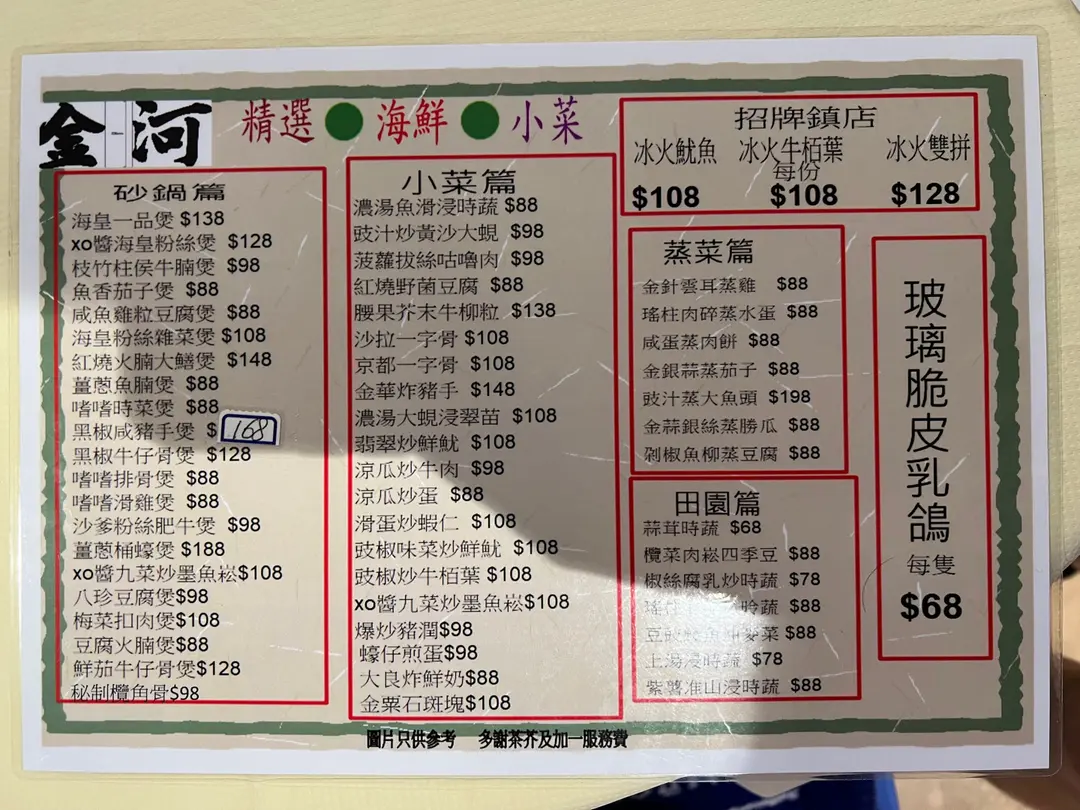 金河
精選●海鮮●小菜
砂鍋篇
海皇一品煲 $138
xo醬海皇粉絲煲 $128
枝竹柱侯牛腩煲 $98
魚香茄子煲 $88
咸魚雞粒豆腐煲 $88
海皇粉絲雜菜煲 $108
紅燒火腩大鱔煲 $148
薑蔥魚腩煲 $88
嗜嗜時菜煲 $88
黑椒咸豬手煲 $168
黑椒牛仔骨煲 $128
嗜嗜排骨煲 $88
嗜嗜滑雞煲 $88
沙爹粉絲肥牛煲 $98
薑蔥桶蠔煲 $188
xo醬九菜炒墨魚崧$108
八珍豆腐煲$98
梅菜扣肉煲$108
豆腐火腩煲$88
鮮茄牛仔骨煲$128
秘制欖角骨$98
小菜篇
濃湯魚滑浸時蔬 $88
豉汁炒黃沙大蜆 $98
菠蘿拔絲咕嚕肉 $98
紅燒野菌豆腐 $88
腰果芥末牛柳粒 $138
沙拉一字骨 $108
京都一字骨 $108
金華炸豬手 $148
濃湯大蜆浸翠苗 $108
翡翠炒鮮魷 $108
涼瓜炒牛肉 $98
涼瓜炒蛋 $88
滑蛋炒蝦仁 $108
豉椒味菜炒鮮魷 $108
豉椒炒牛栢葉 $108
xo醬九菜炒墨魚崧$108
爆炒豬潤$98
蠔仔煎蛋$98
大良炸鮮奶$88
金粟石斑塊$108
招牌鎮店
冰火魷魚 冰火牛栢葉 冰火雙拼
每份
$108 $108 $128
蒸菜篇
金針雲耳蒸雞 $88
瑤柱肉碎蒸水蛋 $88
咸蛋蒸肉餅 $88
金銀蒜蒸茄子 $88
豉汁蒸大魚頭 $198
金蒜銀絲蒸勝瓜 $88
剁椒魚柳蒸豆腐 $88
田園篇
蒜茸時蔬 $68
欖菜肉崧四季豆 $88
椒絲腐乳炒時蔬 $78
蔬 $88
菜 $88
上湯浸時蔬 $78
紫薯淮山浸時蔬 $88
玻璃脆皮乳鴿
每隻
$68
圖片只供參考 多謝茶芥及加一服務費